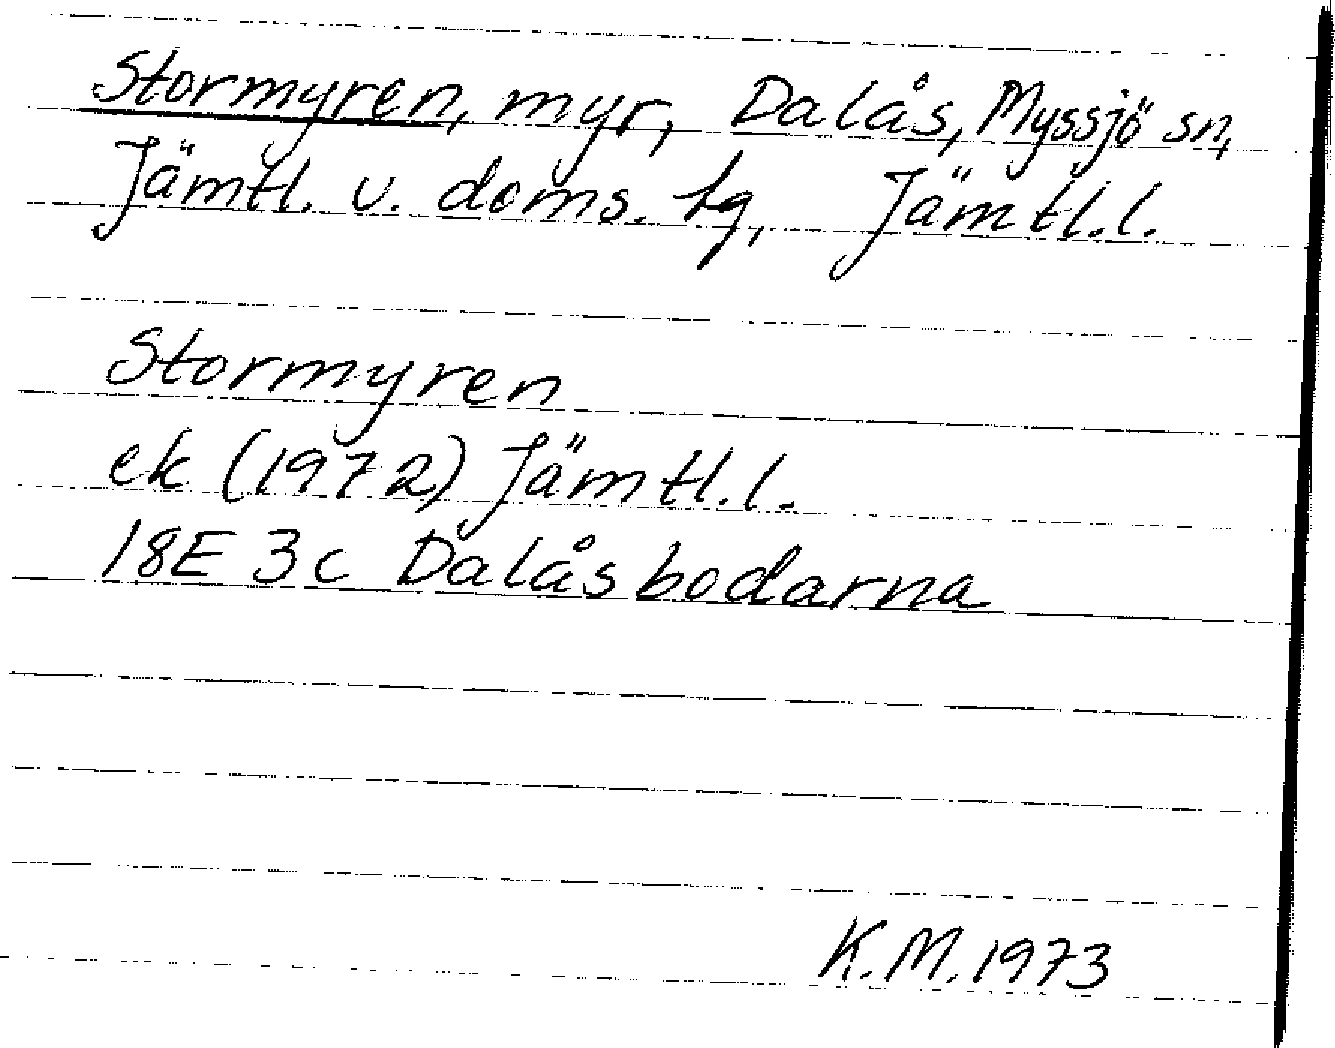 Stormyren, myr, Dalås, Myssjö sn,
Jämtl. v. doms. tg, Jämtl.l.
Stormyren
ek (1972) Jämtl.l.
18E 3c Dalåsbodarna
K.M. 1973